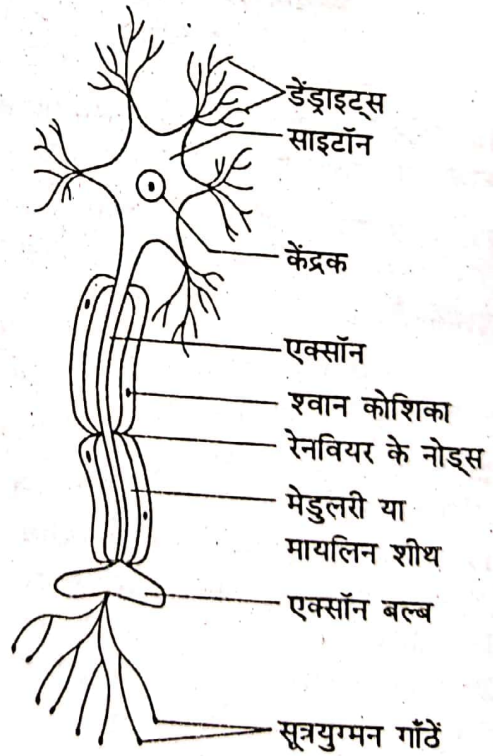 डेंड्राइट्स
साइटॉन
केंद्रक
एक्सॉन
श्वान कोशिका
रेनवियर के नोड्स
मेडुलरी या
मायलिन शीथ
एक्सॉन बल्ब
सूत्रयुग्मन गाँठें